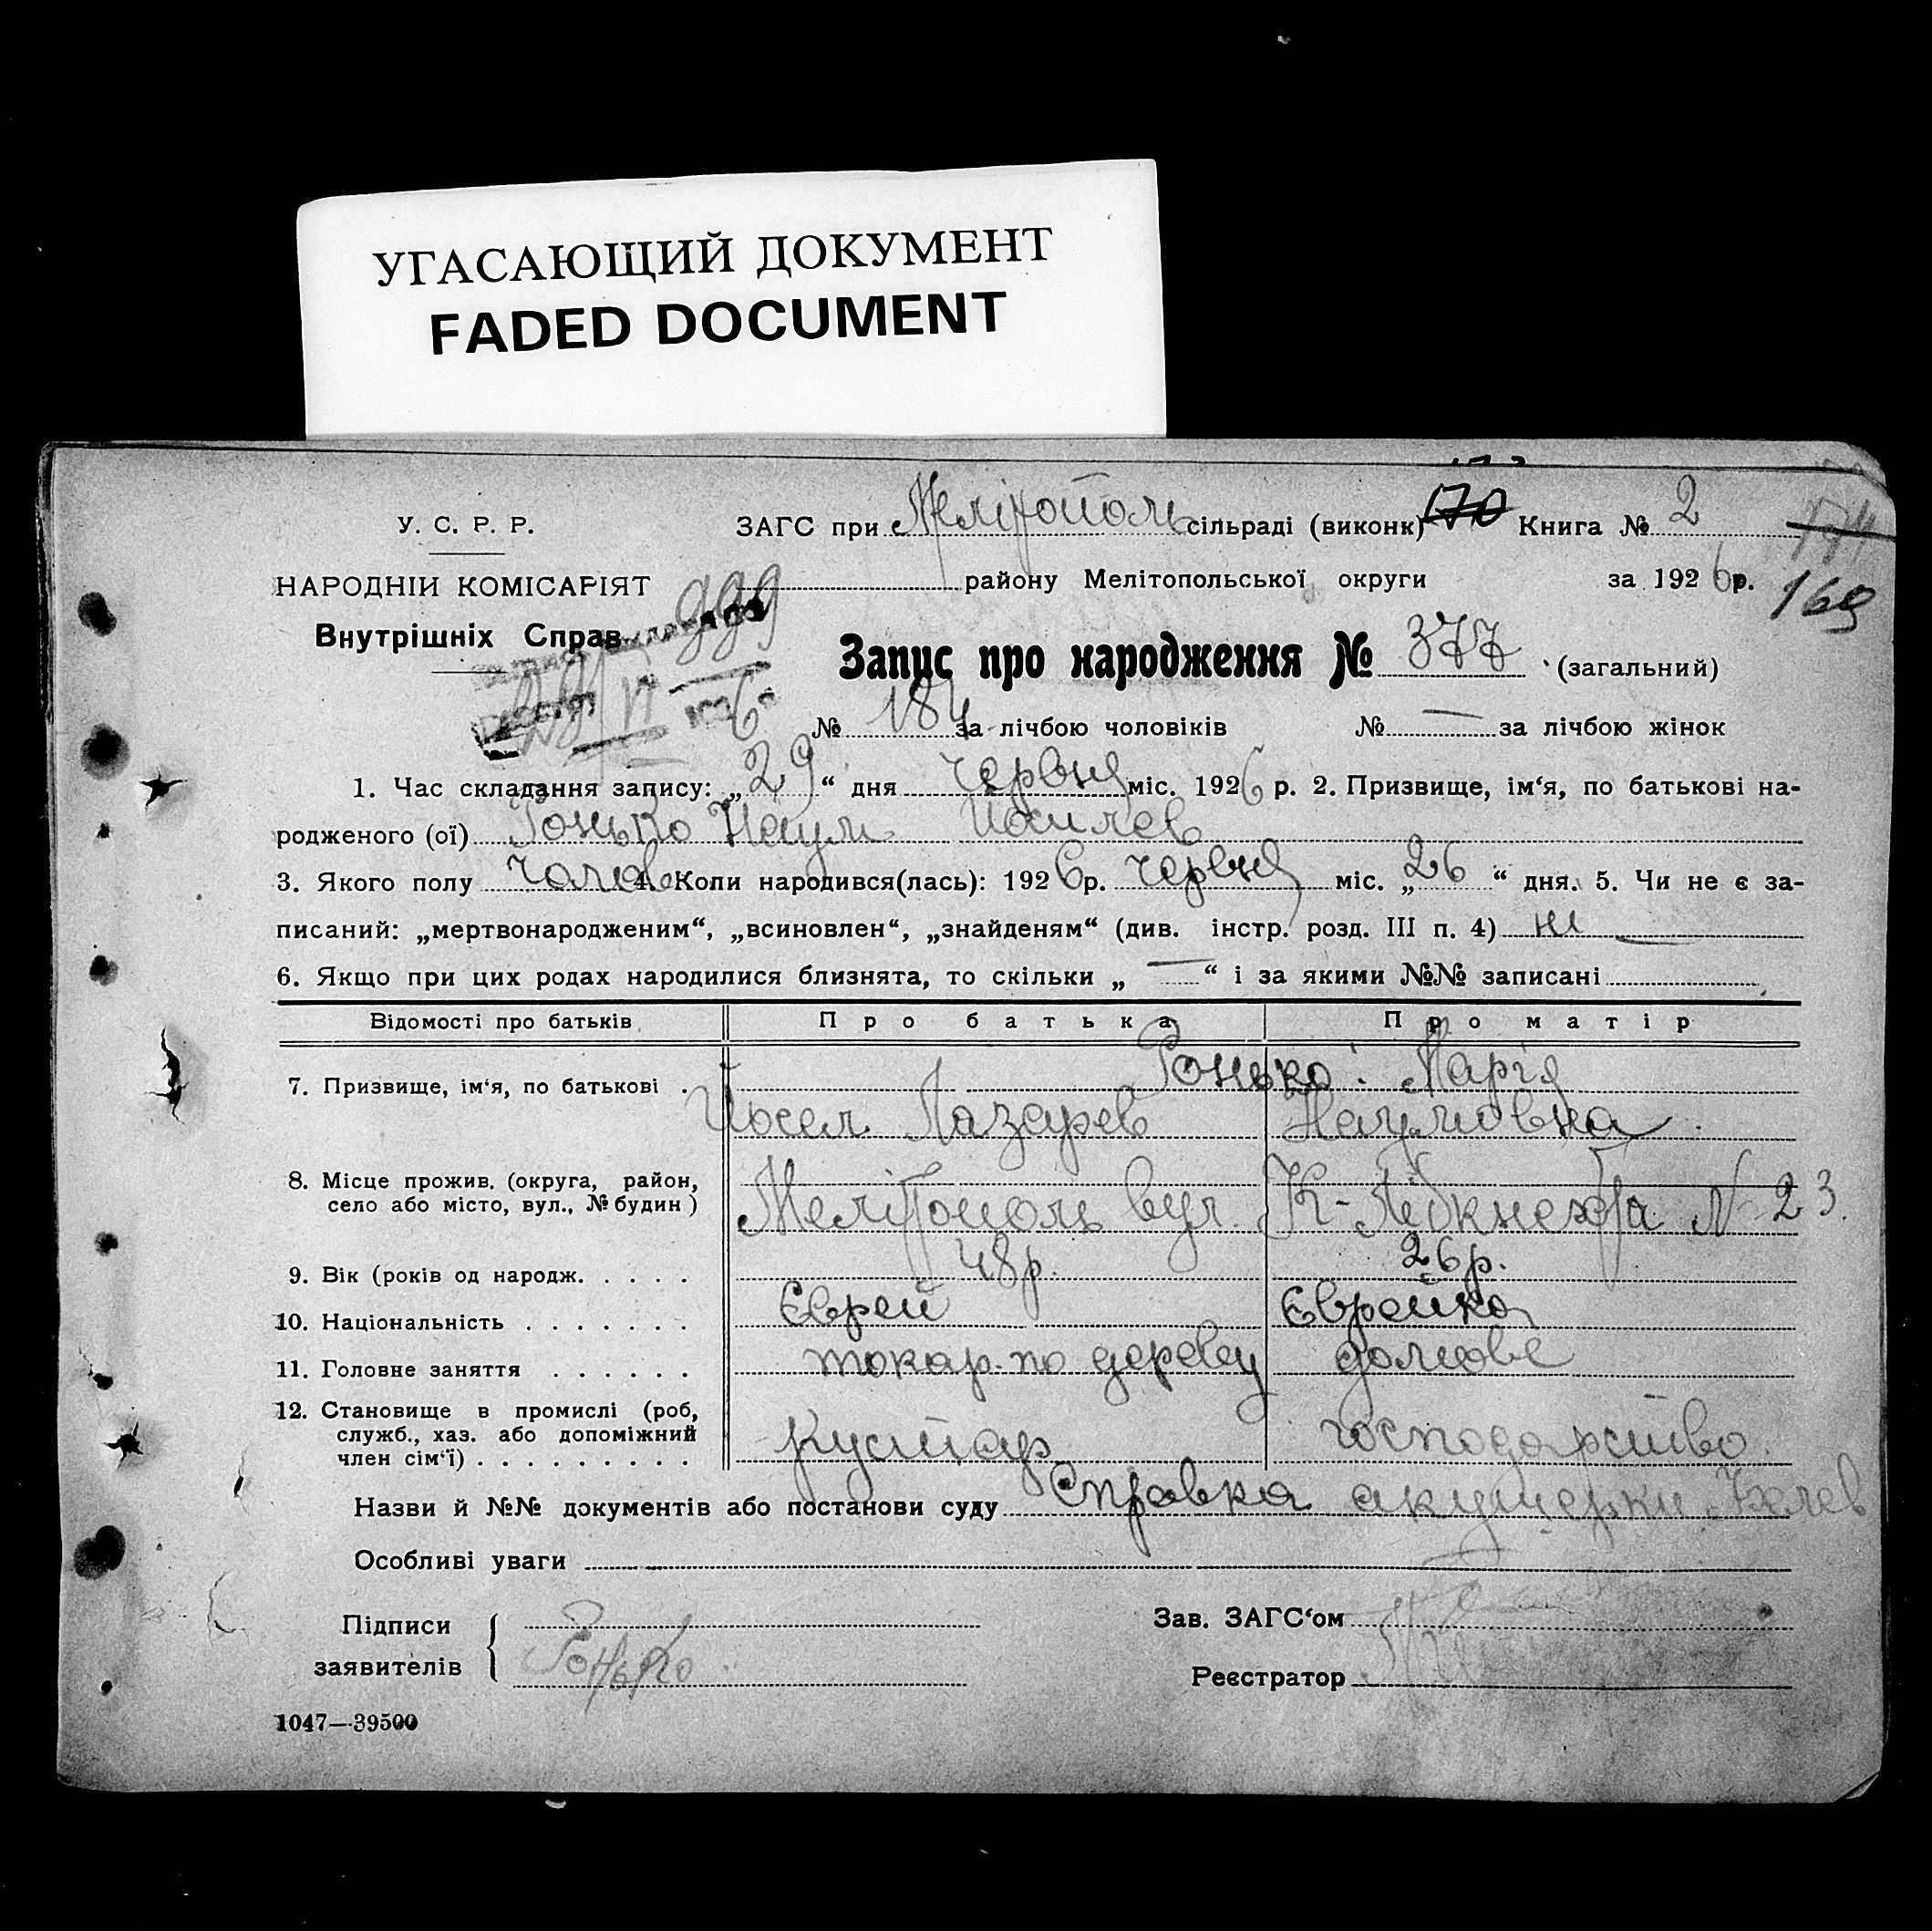 УГАСАЮЩИЙ ДОКУМЕНТ
FADED DOCUMENT
У. С. Р. Р.
ЗАГС при Мелітополь сільраді (виконк) 170 Книга № 2
174
НАРОДНІЙ КОМІСАРІЯТ
району Мелітопольської округи за 1926 р.
169
Внутрішніх Справ
999
Запис про народження № 377 (загальний)
29 VI 1926
№ 184 за лічбою чоловіків № — за лічбою жінок
1. Час складання запису: „29“ дня червня міс. 1926 р. 2. Призвище, ім‘я, по батькові на-
родженого (ої) Ронько Наум Иосилев
3. Якого полу чолов. 4. Коли народився(лась): 1926 р. червня міс. „26“ дня. 5. Чи не є за-
писаний: „мертвонародженим“, „всиновлен“, „знайденям“ (див. інстр. розд. III п. 4) ні
6. Якщо при цих родах народилися близнята, то скільки „—“ і за якими №№ записані
Відомості про батьків Про батька Про матір
7. Призвище, ім‘я, по батькові . Ронько Марія
Иосел Лазарев Наумовна
8. Місце прожив. (округа, район,
село або місто, вул., № будин) Мелітополь вул. К-Лібкнехта № 23.
9. Вік (років од народж. . . . . 48 р. 26 р.
10. Національність . . . . . . . Єврей Єврейка
11. Головне заняття . . . . . . токар по дереву домове
12. Становище в промислі (роб,
служб., хаз. або допоміжний
член сім‘ї) . . . . . . . . . кустар господарство.
Назви й №№ документів або постанови суду Справка акушерки
Особливі уваги
Підписи
заявителів Ронько
Зав. ЗАГС‘ом
Реєстратор
1047—39500